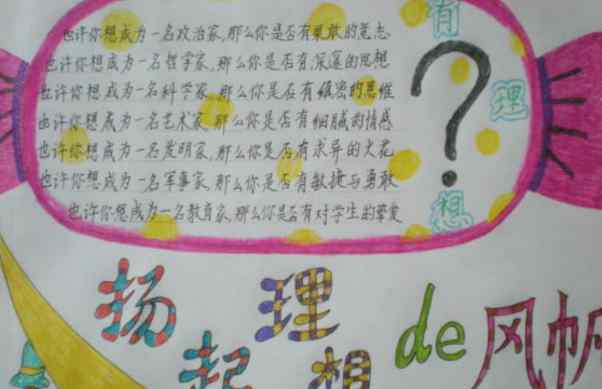 也许你想成为一名政治家,那么你是否有果敢的意志
也许你想成为一名哲学家,那么你是否有深邃的思想
也许你想成为一名科学家,那么你是否有缜密的思维
也许你想成为一名艺术家,那么你是否有细腻的情感
也许你想成为一名发明家,那么你是否有求异的火花
也许你想成为一名军事家,那么你是否有敏捷与勇敢
也许你想成为一名教育家,那么你是否有对学生的挚爱
有理想?
扬起理想de风帆